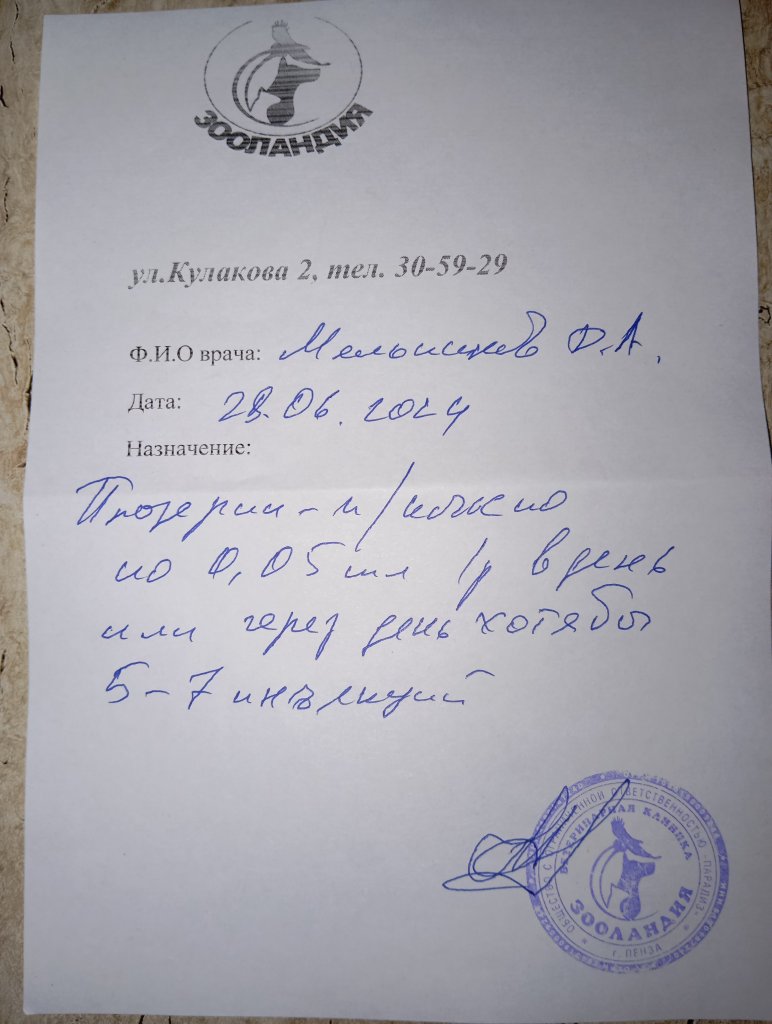 ЗООЛАНДИЯ
ул.Кулакова 2, тел. 30-59-29
Ф.И.О врача: Мельников Д.А.
Дата: 28.06.2024
Назначение:
Прозерин - п/кожно
по 0,05 мл 1р в день
или через день хотябы
5-7 инъекций
ОБЩЕСТВО С ОГРАНИЧЕННОЙ ОТВЕТСТВЕННОСТЬЮ "ПАРАДИЗ"
ВЕТЕРИНАРНАЯ КЛИНИКА
ЗООЛАНДИЯ
г. ПЕНЗА